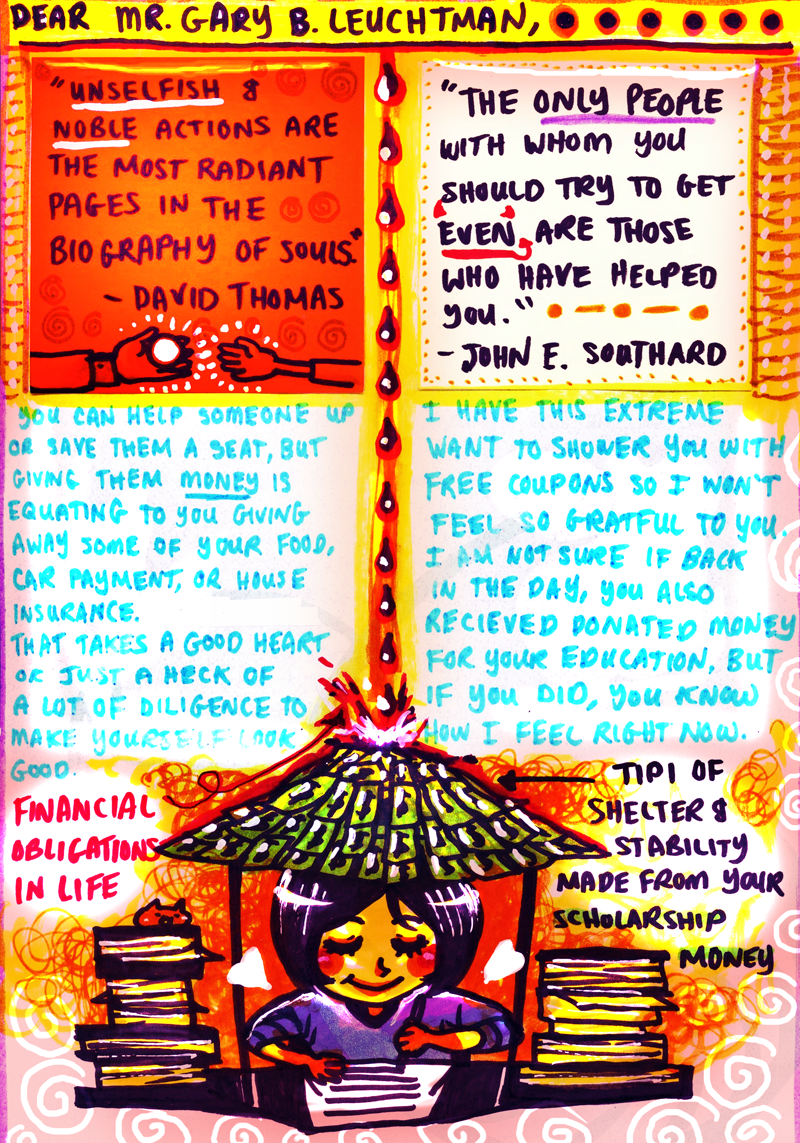 DEAR MR. GARY B. LEUCHTMAN,
"UNSELFISH &
NOBLE ACTIONS ARE
THE MOST RADIANT
PAGES IN THE
BIOGRAPHY OF SOULS."
- DAVID THOMAS
"THE ONLY PEOPLE
WITH WHOM YOU
SHOULD TRY TO GET
EVEN ARE THOSE
WHO HAVE HELPED
YOU."
- JOHN E. SOUTHARD
YOU CAN HELP SOMEONE UP
OR SAVE THEM A SEAT, BUT
GIVING THEM MONEY IS
EQUATING TO YOU GIVING
AWAY SOME OF YOUR FOOD,
CAR PAYMENT, OR HOUSE
INSURANCE.
THAT TAKES A GOOD HEART
OR JUST A HECK OF
A LOT OF DILIGENCE TO
MAKE YOURSELF LOOK
GOOD.
I HAVE THIS EXTREME
WANT TO SHOWER YOU WITH
FREE COUPONS SO I WON'T
FEEL SO GRATFUL TO YOU.
I AM NOT SURE IF BACK
IN THE DAY, YOU ALSO
RECIEVED DONATED MONEY
FOR YOUR EDUCATION, BUT
IF YOU DID, YOU KNOW
HOW I FEEL RIGHT NOW.
FINANCIAL
OBLIGATIONS
IN LIFE
TIPI OF
SHELTER &
STABILITY
MADE FROM YOUR
SCHOLARSHIP
MONEY